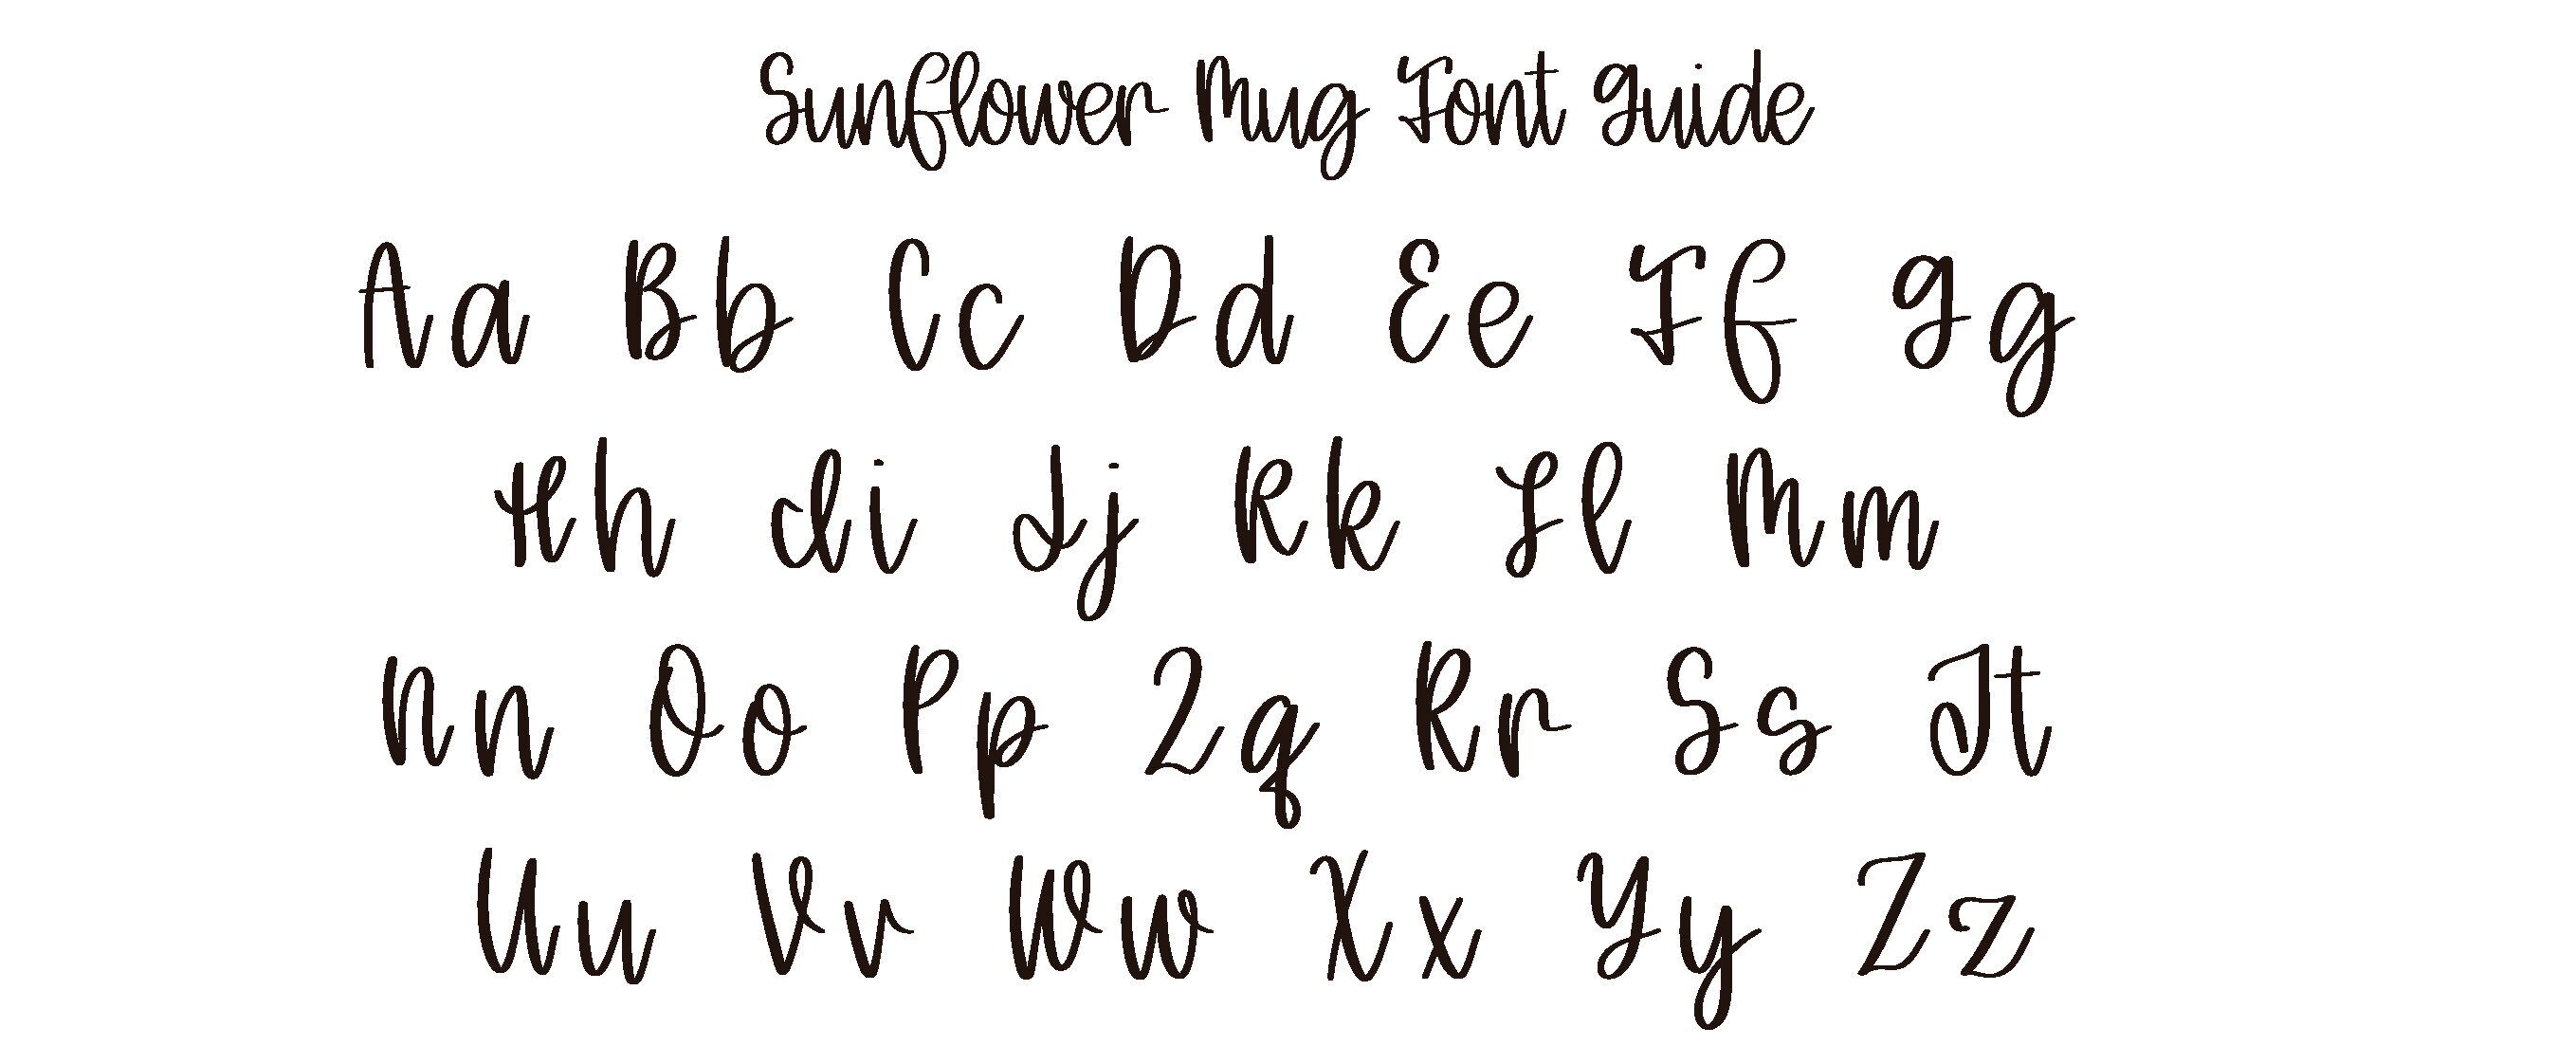 Sunflower Mug Font Guide
Aa Bb Cc Dd Ee Ff Gg
Hh Ii Jj Kk Ll Mm
Nn Oo Pp Qq Rr Ss Tt
Uu Vv Ww Xx Yy Zz